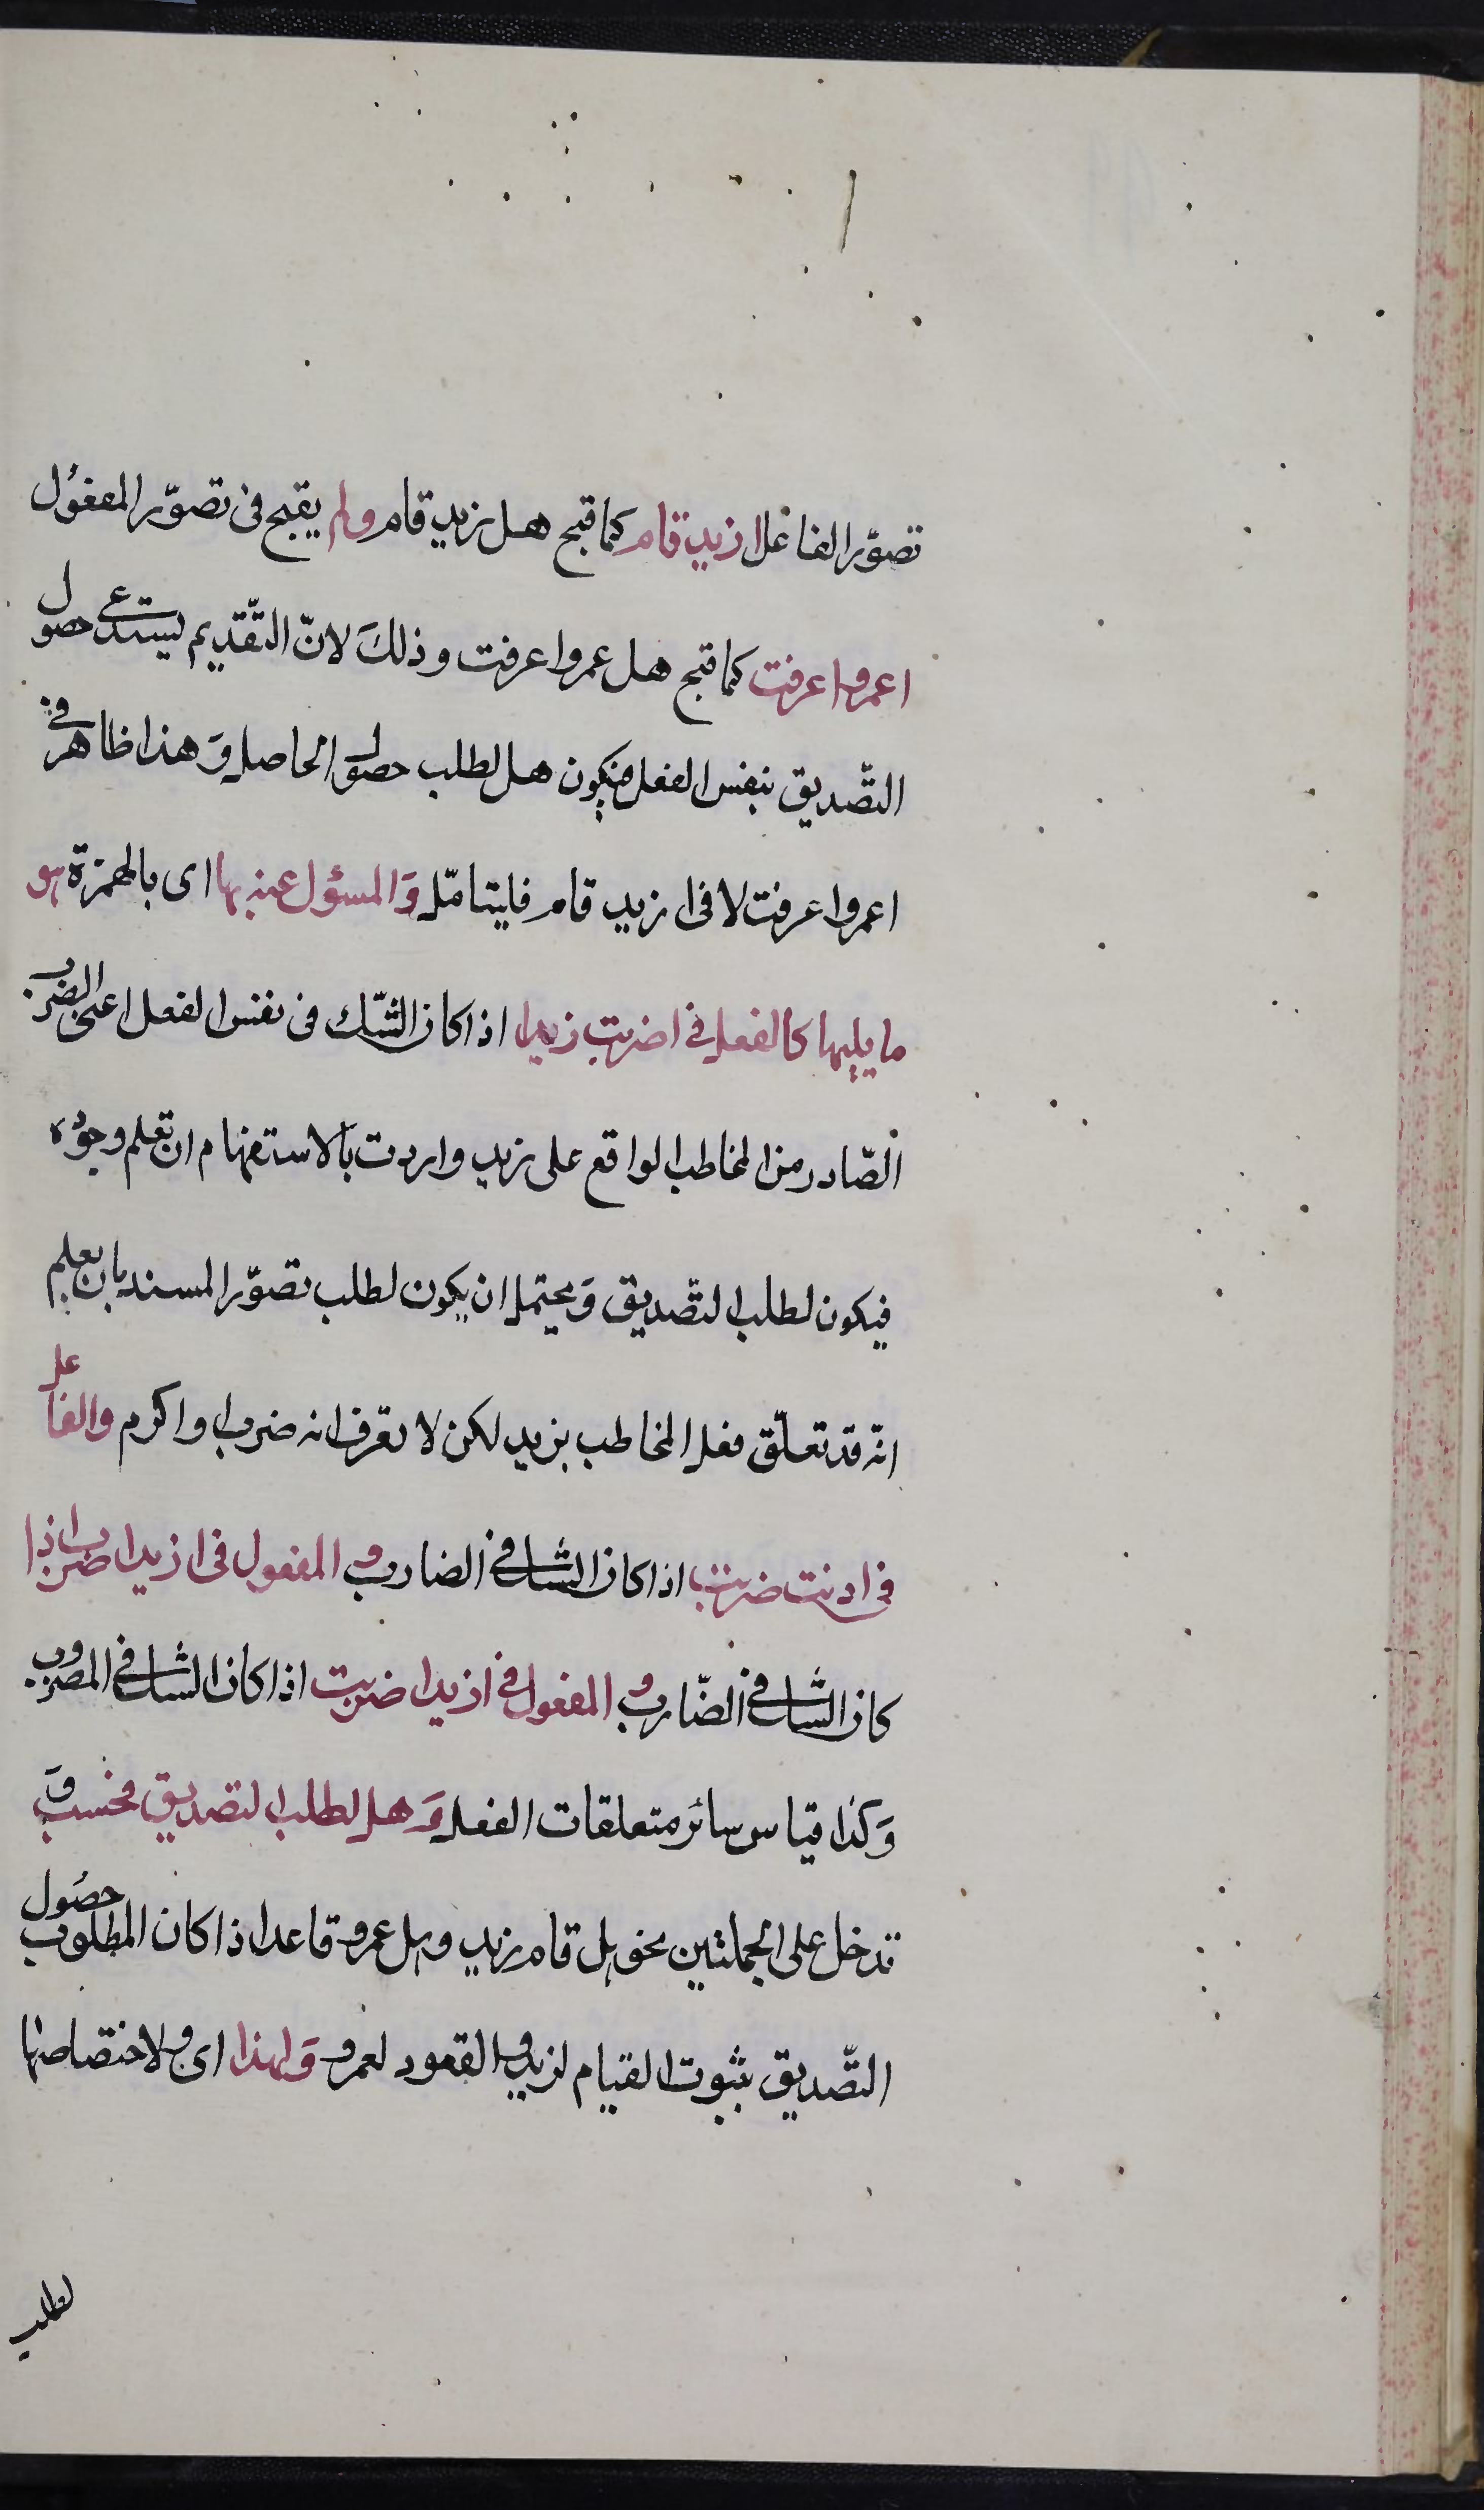 تصوّر الفاعل ازيد قام كما قبح هل زيد قام ولم يقبح فى تصوّر المفعُول
اعمروا عرفت كما قبح هل عمروا عرفت وذلكَ لانّ التّقديم يستدعى حصول
التّصديق بنفس الفعل فيكون هل لطلب حصول الحاصل وَهذا ظاهر فى
اعمروا عرفت لا فى ازيد قام فليتامّل وَالمسؤل عنه بها اى بالهمزة هو
ما يليها كالفعل فى اضربت زيدا اذا كان الشّك فى نفس الفعل اعنى الضرب
الصّادر من المخاطب الواقع على زيد واردت بالاستفهام ان تعلم وجوده
فيكون لطلب التّصديق وَيحتمل ان يكون لطلب تصوّر المسند بان يعلم
انّه قد تعلّق فعل المخاطب بزيد لكن لا يعرف انه ضرب او اكرم والفاعل
فى اانت ضربت اذا كان الشك فى الضارب و المفعول فى ازيدا ضربت اذا
كان الشك فى الضّارب و المفعول فى ازيدا ضربت اذا كان الشك فى المضروب
وَكذا قياس سائر متعلقات الفعل وَهل لطلب التصديق فحسب وَ
تدخل على الجملتين نحو هل قام زيد وهل عمرو قاعد اذا كان المطلوب حصُول
التّصديق بثبوت القيام لزيد و القعود لعمرو وَلهذا اى ولاختصاصها
لطلب